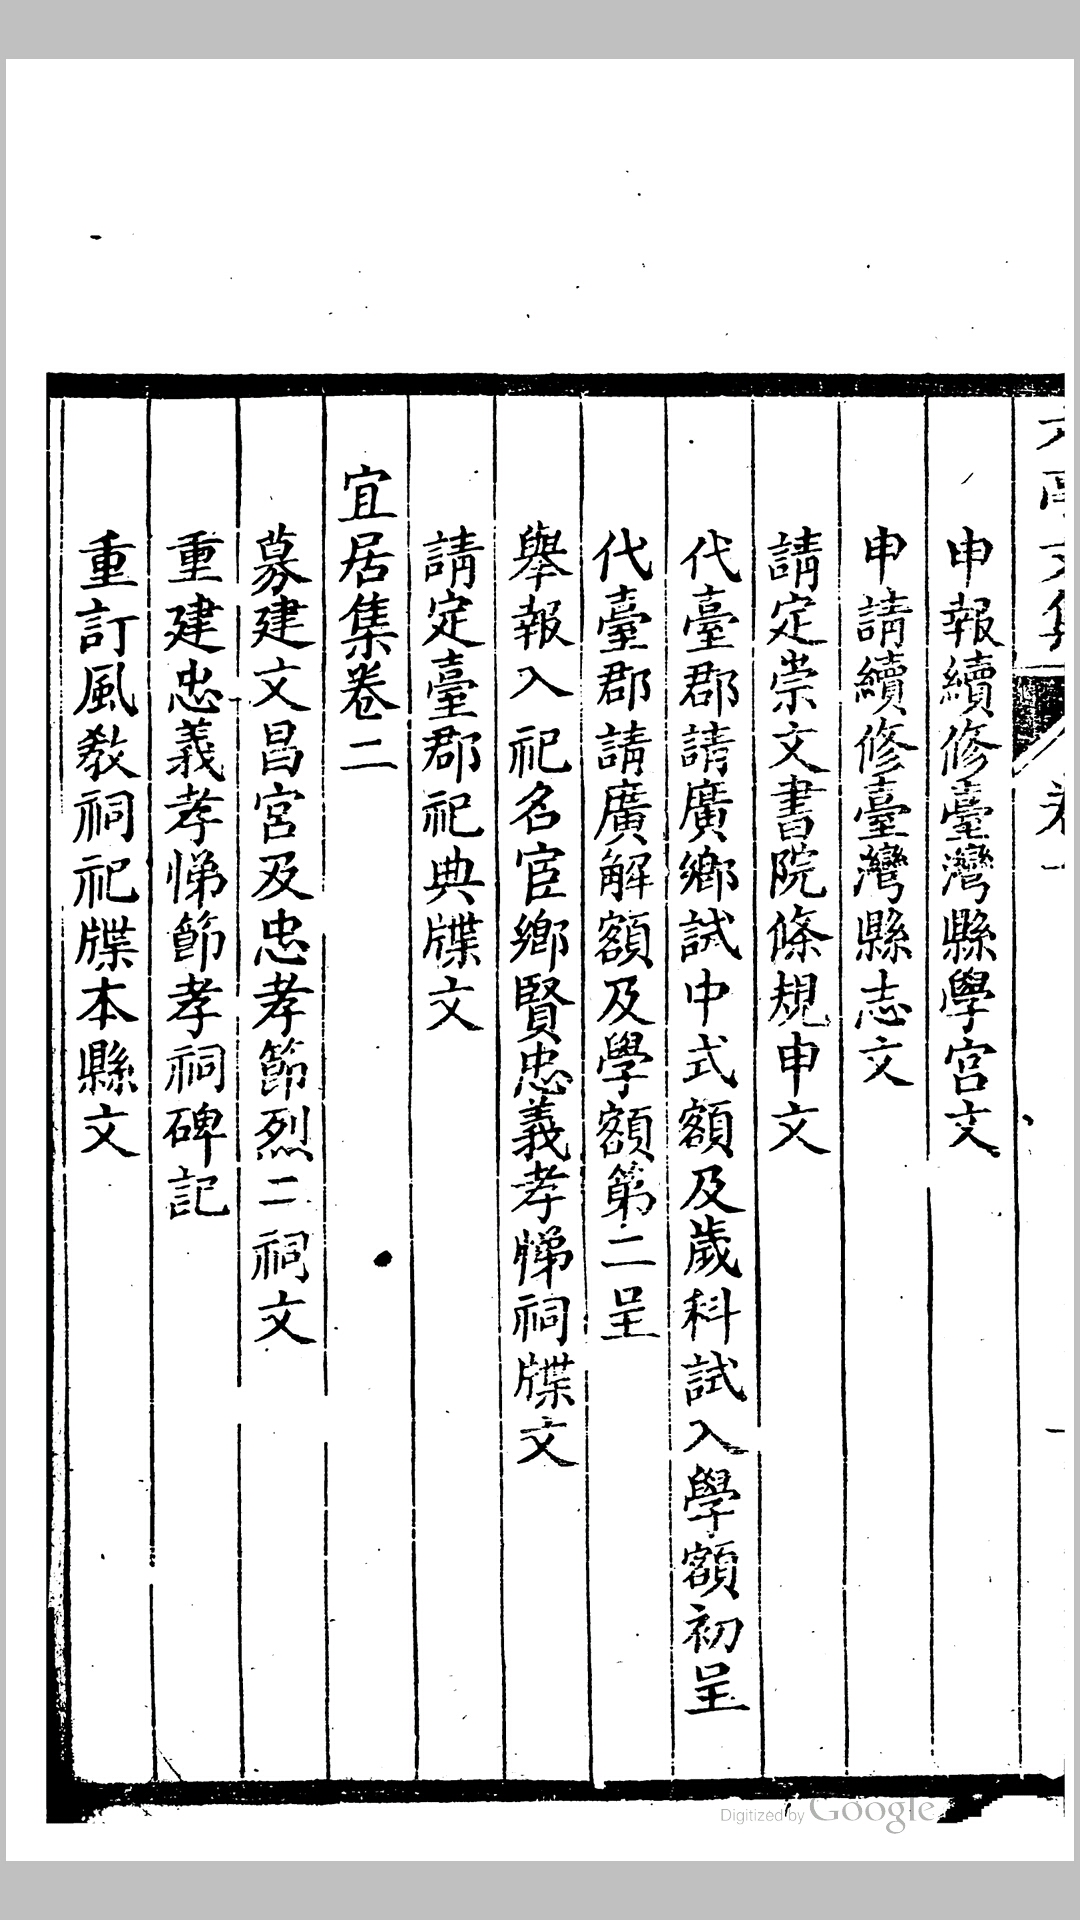 申報續修臺灣縣學宮文
申請續修臺灣縣志文
請定崇文書院條規申文
代臺郡請廣鄉試中式額及歲科試入學額初呈
代臺郡請廣解額及學額第二呈
舉報入祀名宦鄉賢忠義孝悌祠牒文
請定臺郡祀典牒文
宜居集卷二
募建文昌宮及忠孝節烈二祠文
重建忠義孝悌節孝祠碑記
重訂風敎祠祀牒本縣文
Digitized by Google